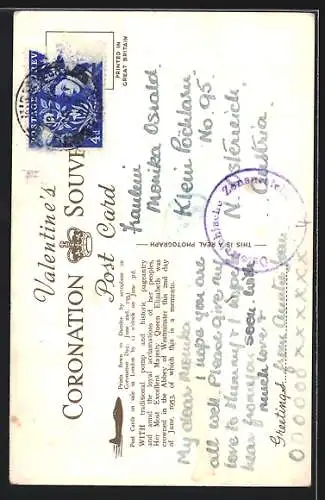 Valentine's
CORONATION SOUVE
Post Card
PRINTED IN
GREAT BRITAIN
POSTAGE REVENUE
4d
Prints flown to Dundee by aeroplane on
Coronation Day, June 2nd, 1953.
Post Cards on sale in London by 11 o'clock on June 3rd.
WITH traditional pomp and historic pageantry
and amid the loyal acclamations of her peoples,
Her Most Excellent Majesty Queen Elizabeth was
crowned in the Abbey of Westminster this 2nd day
of June, 1953, of which this is a memento.
THIS IS A REAL PHOTOGRAPH
My dear Monika
I hope you are
all well Please give my
love to Mummy & I
hear from you soon
much love &
Greetings from Auntie
o o o o o o x x x x x x x
Fräulein
Monika Oswald
Klein Pöchlarn
No. 95
N. Österreich
Austria
Österreichische Zensurstelle
4